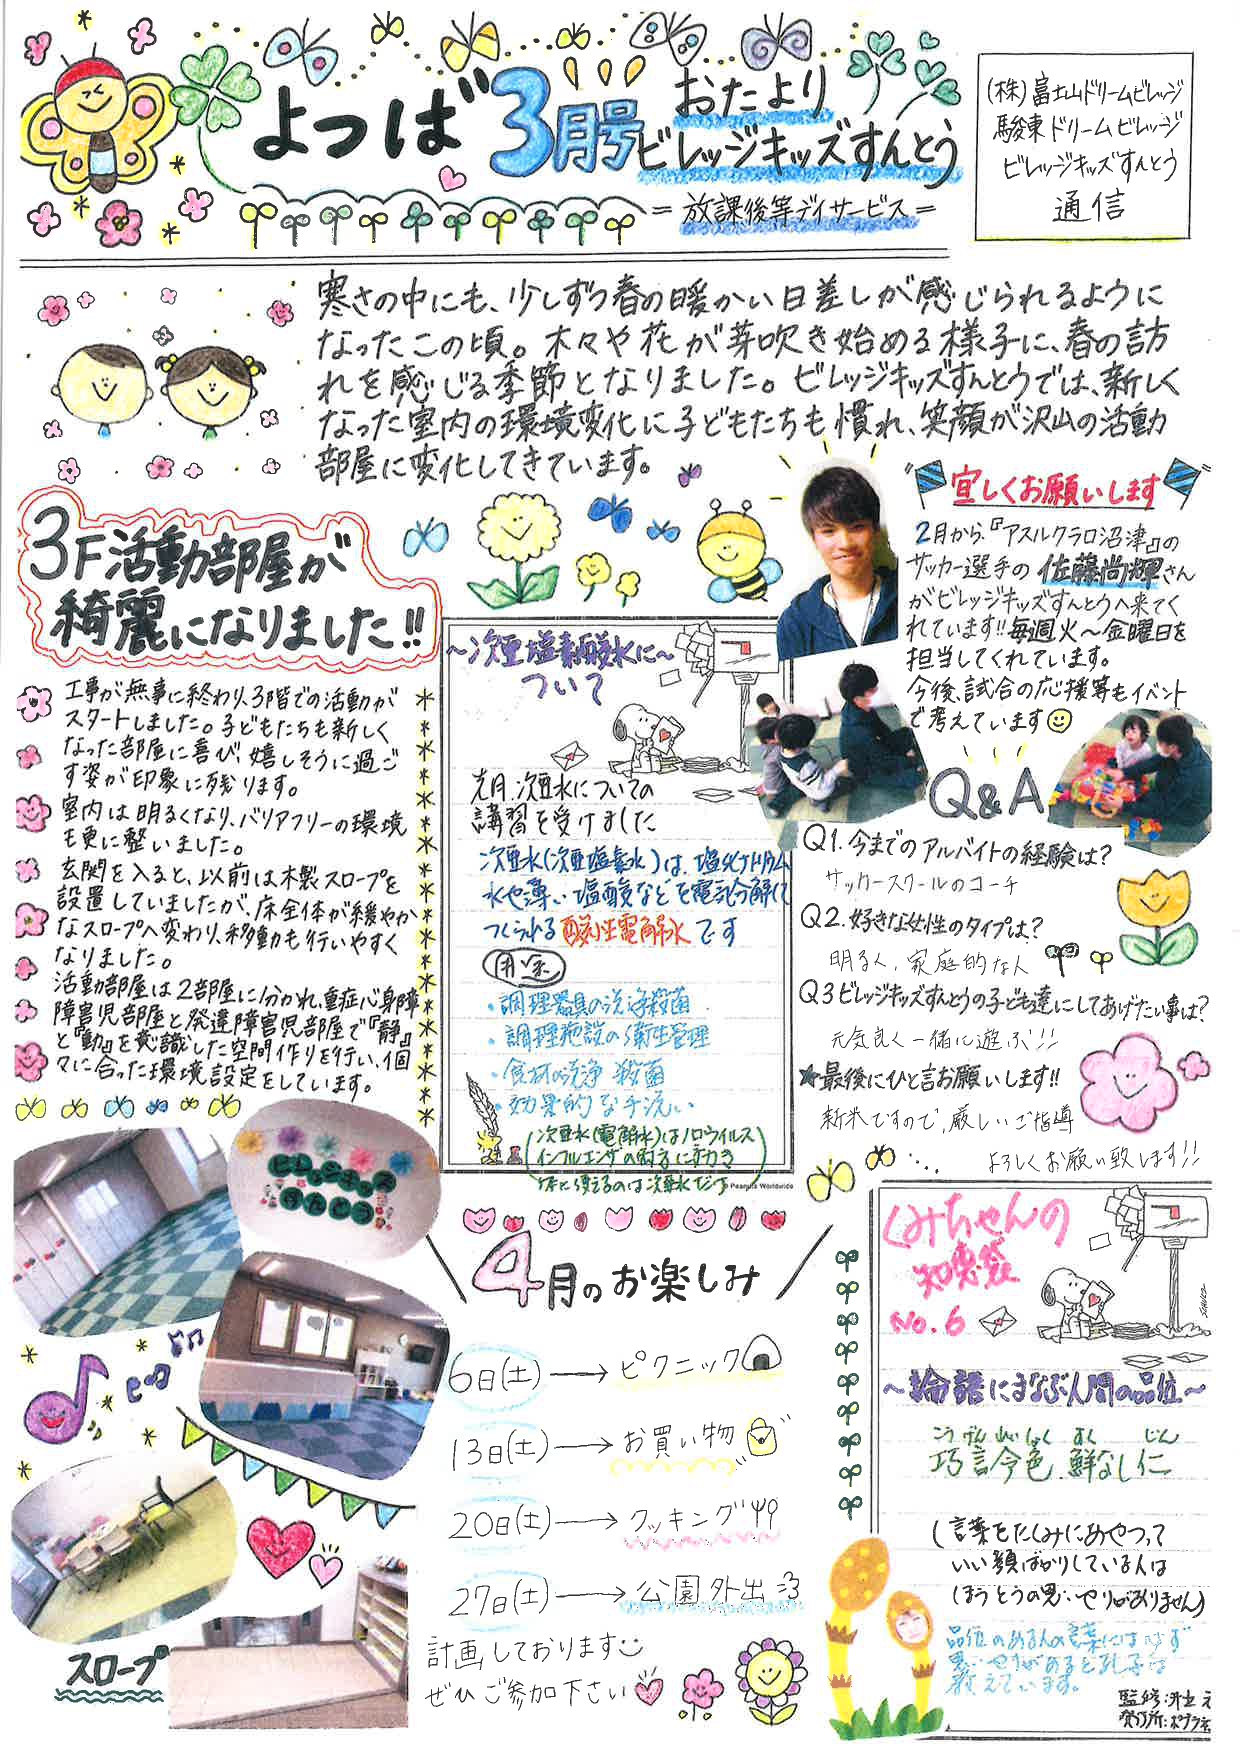 よつば 3月号
おたより
ビレッジキッズすんとう
＝放課後等デイサービス＝
(株)富士山ドリームビレッジ
駿東ドリームビレッジ
ビレッジキッズすんとう
通信
寒さの中にも、少しずつ春の暖かい日差しが感じられるように
なったこの頃。木々や花が芽吹き始める様子に、春の訪
れを感じる季節となりました。ビレッジキッズすんとうでは、新しく
なった室内の環境変化に子どもたちも慣れ、笑顔が沢山の活動
部屋に変化してきています。
3F活動部屋が
綺麗になりました!!
工事が無事に終わり、3階での活動が
スタートしました。子どもたちも新しく
なった部屋に喜び、嬉しそうに過ご
す姿が印象に残ります。
室内は明るくなり、バリアフリーの環境
も更に整いました。
玄関を入ると、以前は木製スロープを
設置していましたが、床全体が緩やか
なスロープへ変わり、移動も行いやすく
なりました。
活動部屋は2部屋に分かれ、重症心身障
障害児部屋と発達障害児部屋で『静』
と『動』を意識した空間作りを行い、個
々に合った環境設定をしています。
ビレッジキッズ
すんとう
スロープ
～次亜塩素酸水に～
ついて
先月、次亜水についての
講習を受けました
次亜水(次亜塩素水)は、塩化ナトリウム
水や薄い塩酸などを電気分解して
つくられる酸性電解水です
用途
・調理器具の洗浄殺菌
・調理施設の衛生管理
・食材の洗浄 殺菌
・効果的な手洗い
(次亜水(電解水)はノロウイルス
インフルエンザの両方に効き
体に使えるのは次亜水だけ)
Peanuts Worldwide
宜しくお願いします
2月から、『アスルクラロ沼津』の
サッカー選手の 佐藤尚輝さん
がビレッジキッズすんとうへ来てく
れています!!毎週火～金曜日を
担当してくれています。
今後、試合の応援等もイベント
で考えています
Q&A
Q1.今までのアルバイトの経験は?
サッカースクールのコーチ
Q2.好きな女性のタイプは?
明るく、家庭的な人
Q3ビレッジキッズすんとうの子ども達にしてあげたい事は?
元気良く一緒に遊ぶ!!
★最後にひと言お願いします!!
新米ですので、厳しいご指導
よろしくお願い致します!!
4月のお楽しみ
6日(土)→ピクニック
13日(土)→お買い物
20日(土)→クッキング
27日(土)→公園外出
計画しております
ぜひご参加下さい
くみちゃんの
知恵袋
No.6
～論語にまなぶ人間の品位～
こうげんれいしょく すく じん
巧言令色 鮮なし仁
(言葉をたくみにあやつって
いい顔ばかりしている人は
ほうとうの思いやりがありません)
品位のある人の言葉にはかならず
思いやりがあると孔子は
教えています。